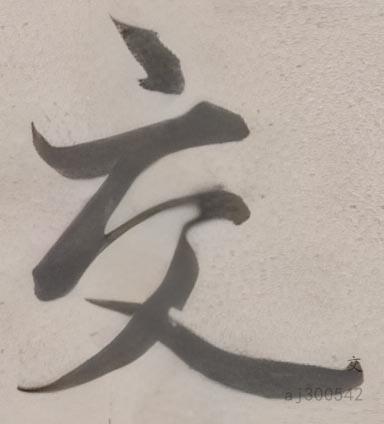 交
交
aj300542